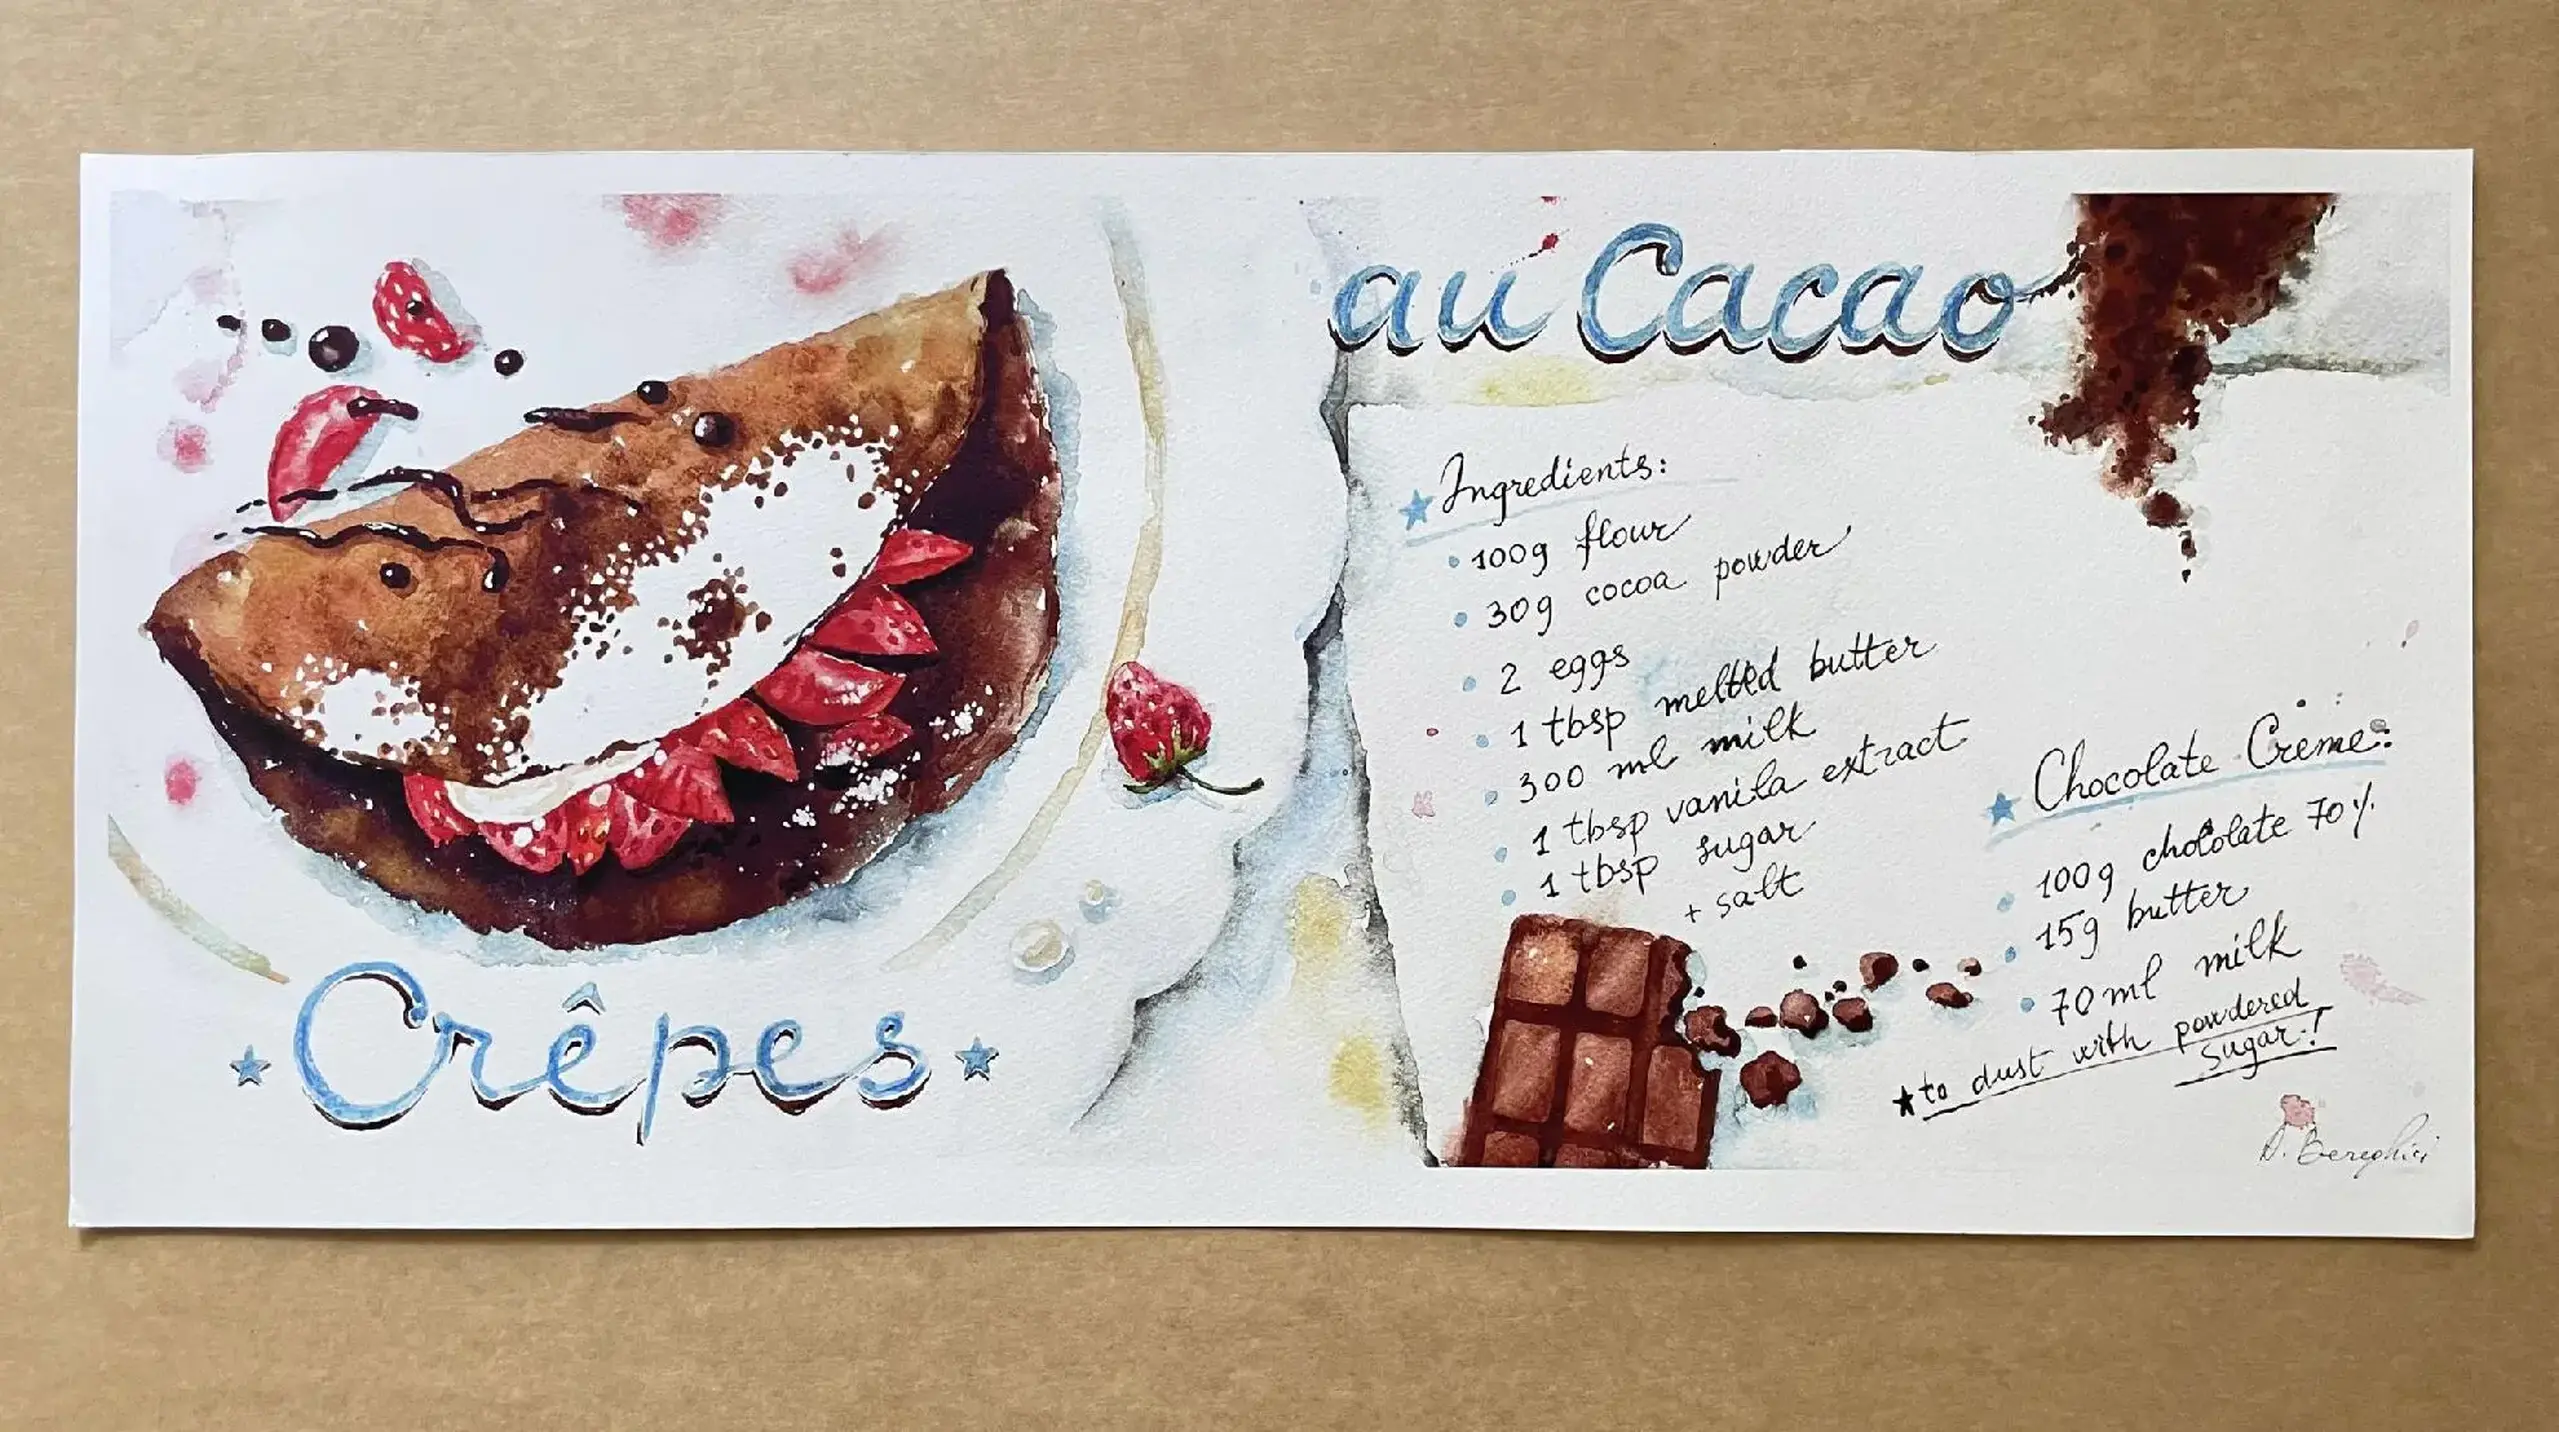 Crêpes
au Cacao
Ingredients:
100g flour
30g cocoa powder
2 eggs
1 tbsp melted butter
300 ml milk
1 tbsp vanila extract
1 tbsp sugar
+ salt
Chocolate Creme:
100g chocolate 70%
15g butter
70ml milk
to dust with powdered
sugar!
D. Bereghici